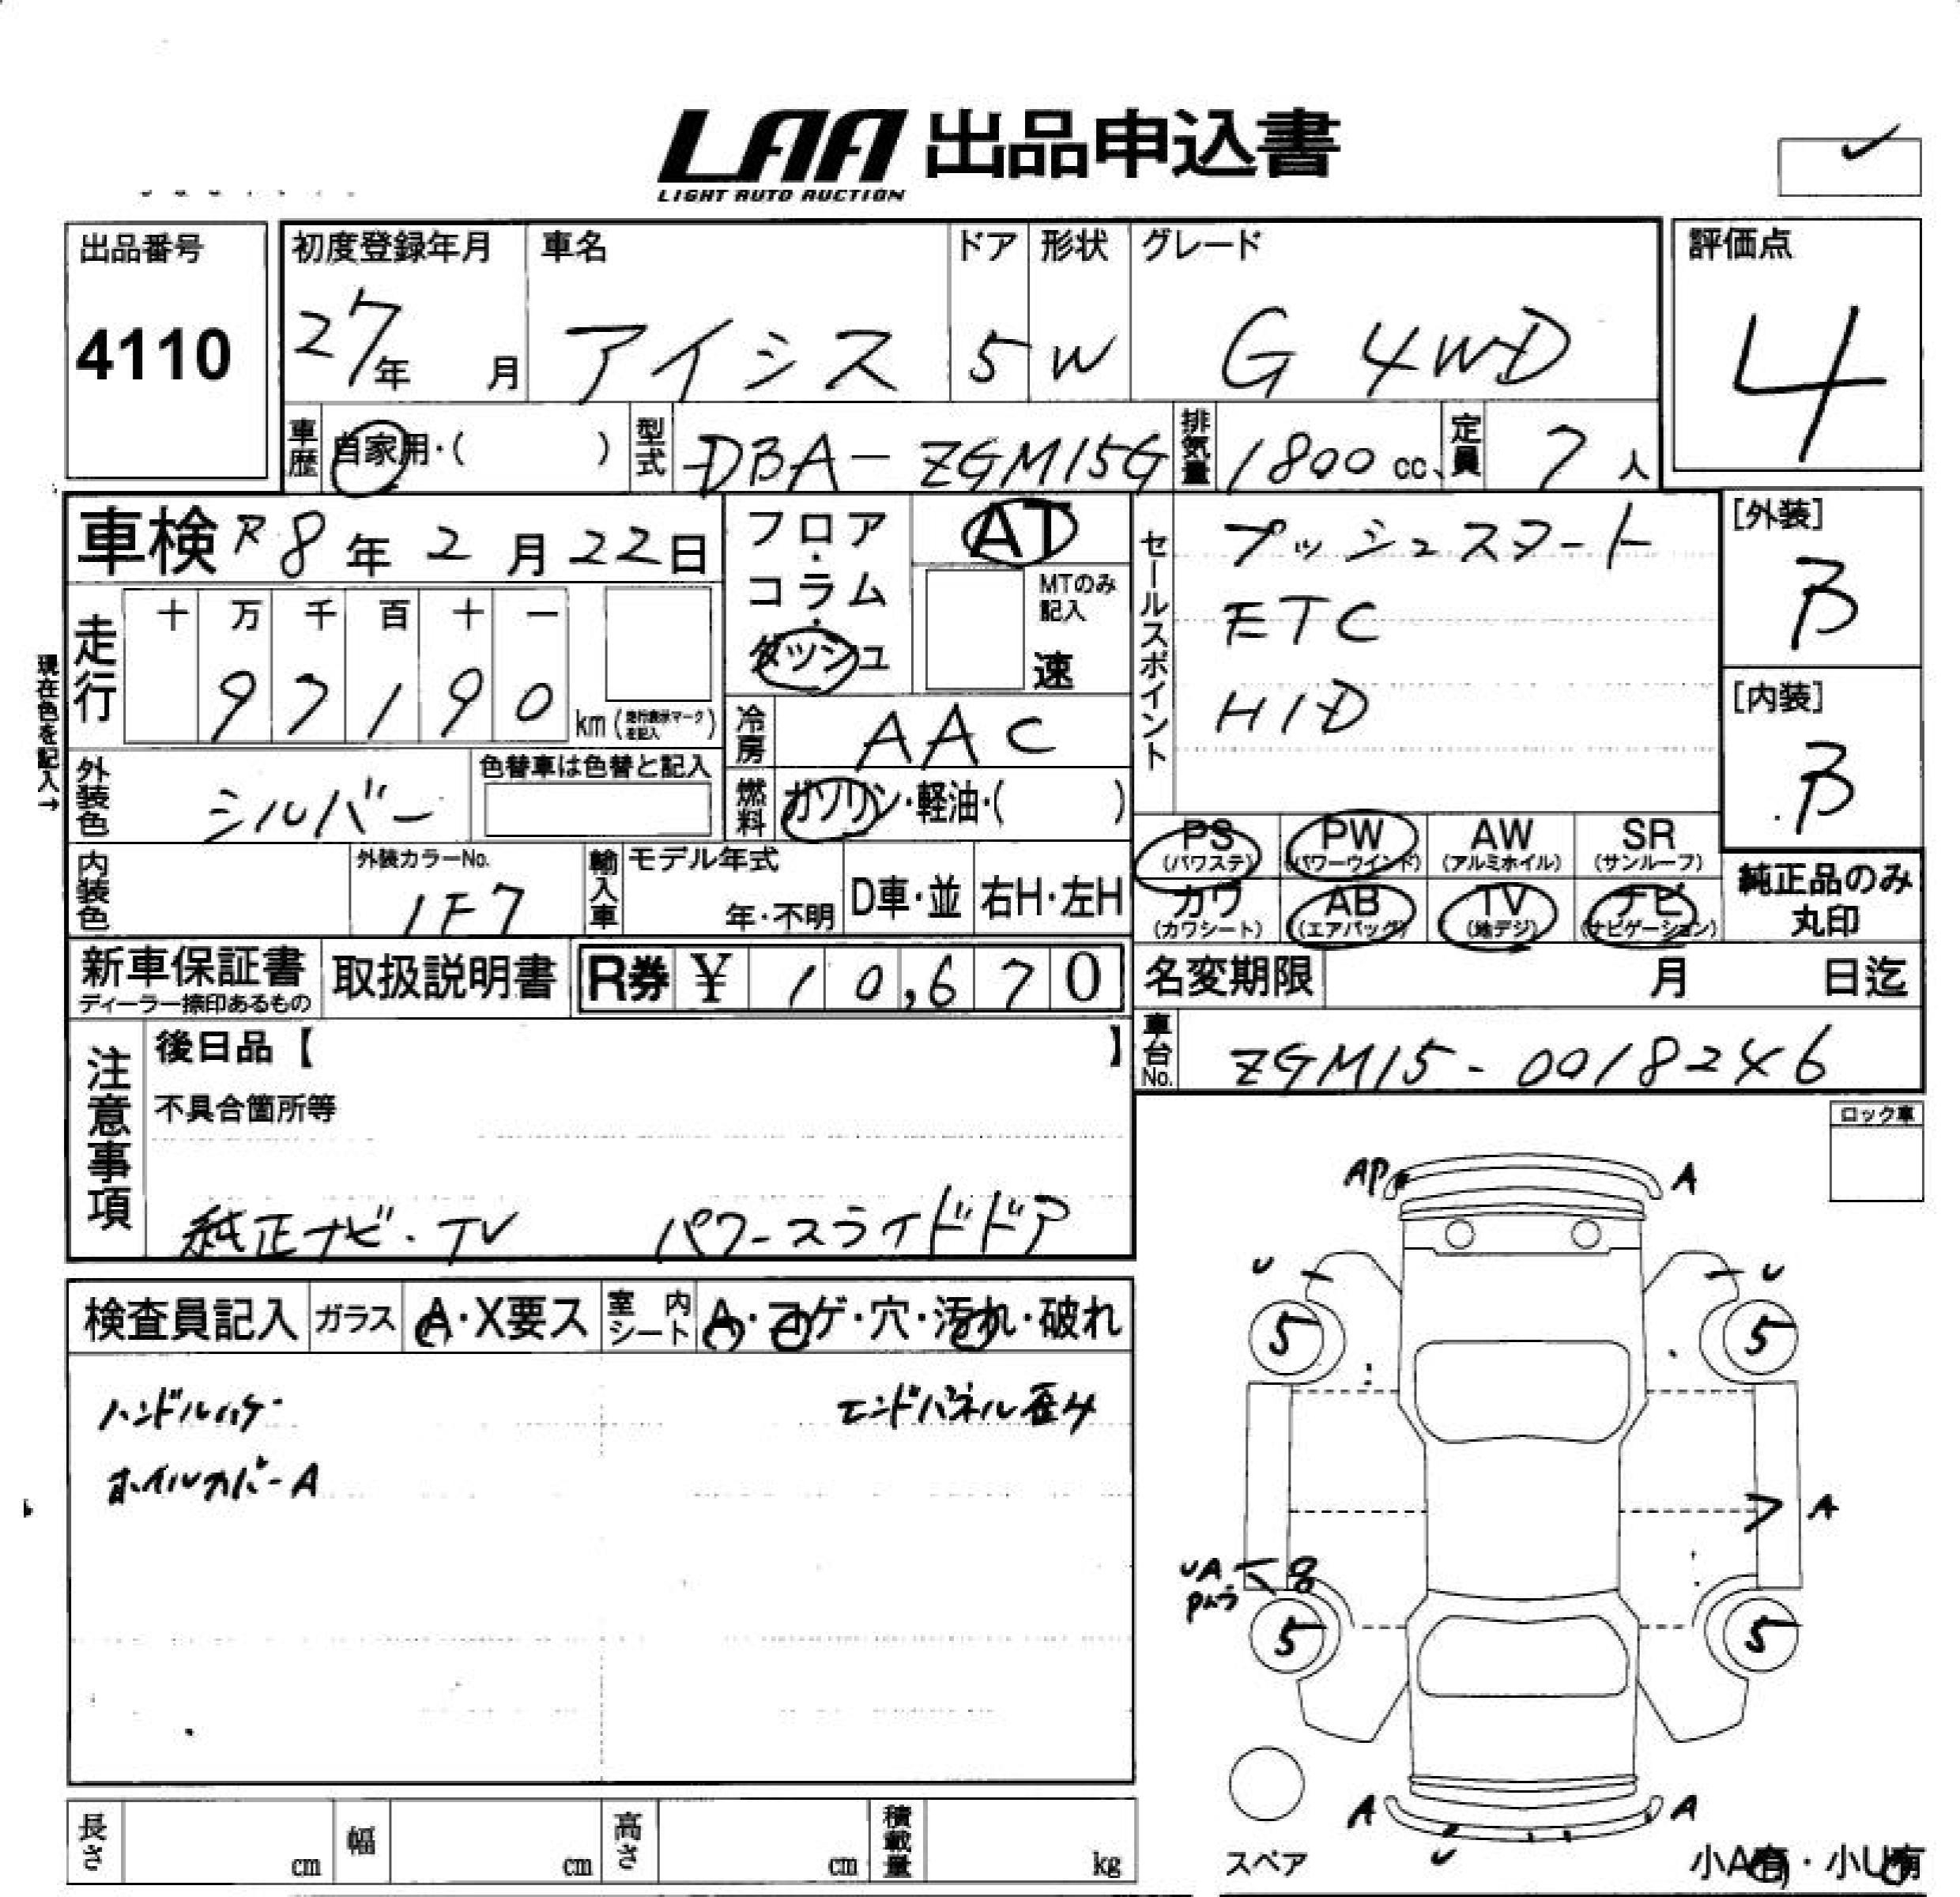 LAA 出品申込書
LIGHT AUTO AUCTION
出品番号
4110
初度登録年月
27年 月
車名
アイシス
ドア
5
形状
W
グレード
G 4WD
評価点
4
車歴 自家用・( )
型式 DBA-ZGM15G
排気量 1800 cc
定員 7 人
車検 R8年2月22日
走行
十 万 千 百 十 一
9 7 1 9 0 km(走行表示マークを記入)
現在色を記入→
外装色 シルバー
色替車は色替と記入
内装色
外装カラーNo.
1F7
フロア・コラム・ダッシュ
AT
MTのみ記入
速
冷房 AAC
燃料 ガソリン・軽油・( )
輸入車
モデル年式
年・不明
D車・並
右H・左H
セールスポイント
プッシュスタート
ETC
HID
[外装]
B
[内装]
B
PS (パワステ)
PW (パワーウインド)
AW (アルミホイル)
SR (サンルーフ)
カワ (カワシート)
AB (エアバッグ)
TV (地デジ)
ナビ (ナビゲーション)
純正品のみ丸印
新車保証書
ディーラー捺印あるもの
取扱説明書
R券 ¥ 10,670
名変期限 月 日迄
車台No. ZGM15-0018246
注意事項
後日品【 】
不具合箇所等
純正ナビ・TV パワースライドドア
ロック車
検査員記入
ガラス A・X要ス
室内シート A・コゲ・穴・汚れ・破れ
ハンドルハゲ
エンドパネル歪み
ホイルカバーA
AP
A
U
U
5
5
A
UA
8
5
5
A
A
U
スペア
小A有・小U有
長さ cm
幅 cm
高さ cm
積載量 kg